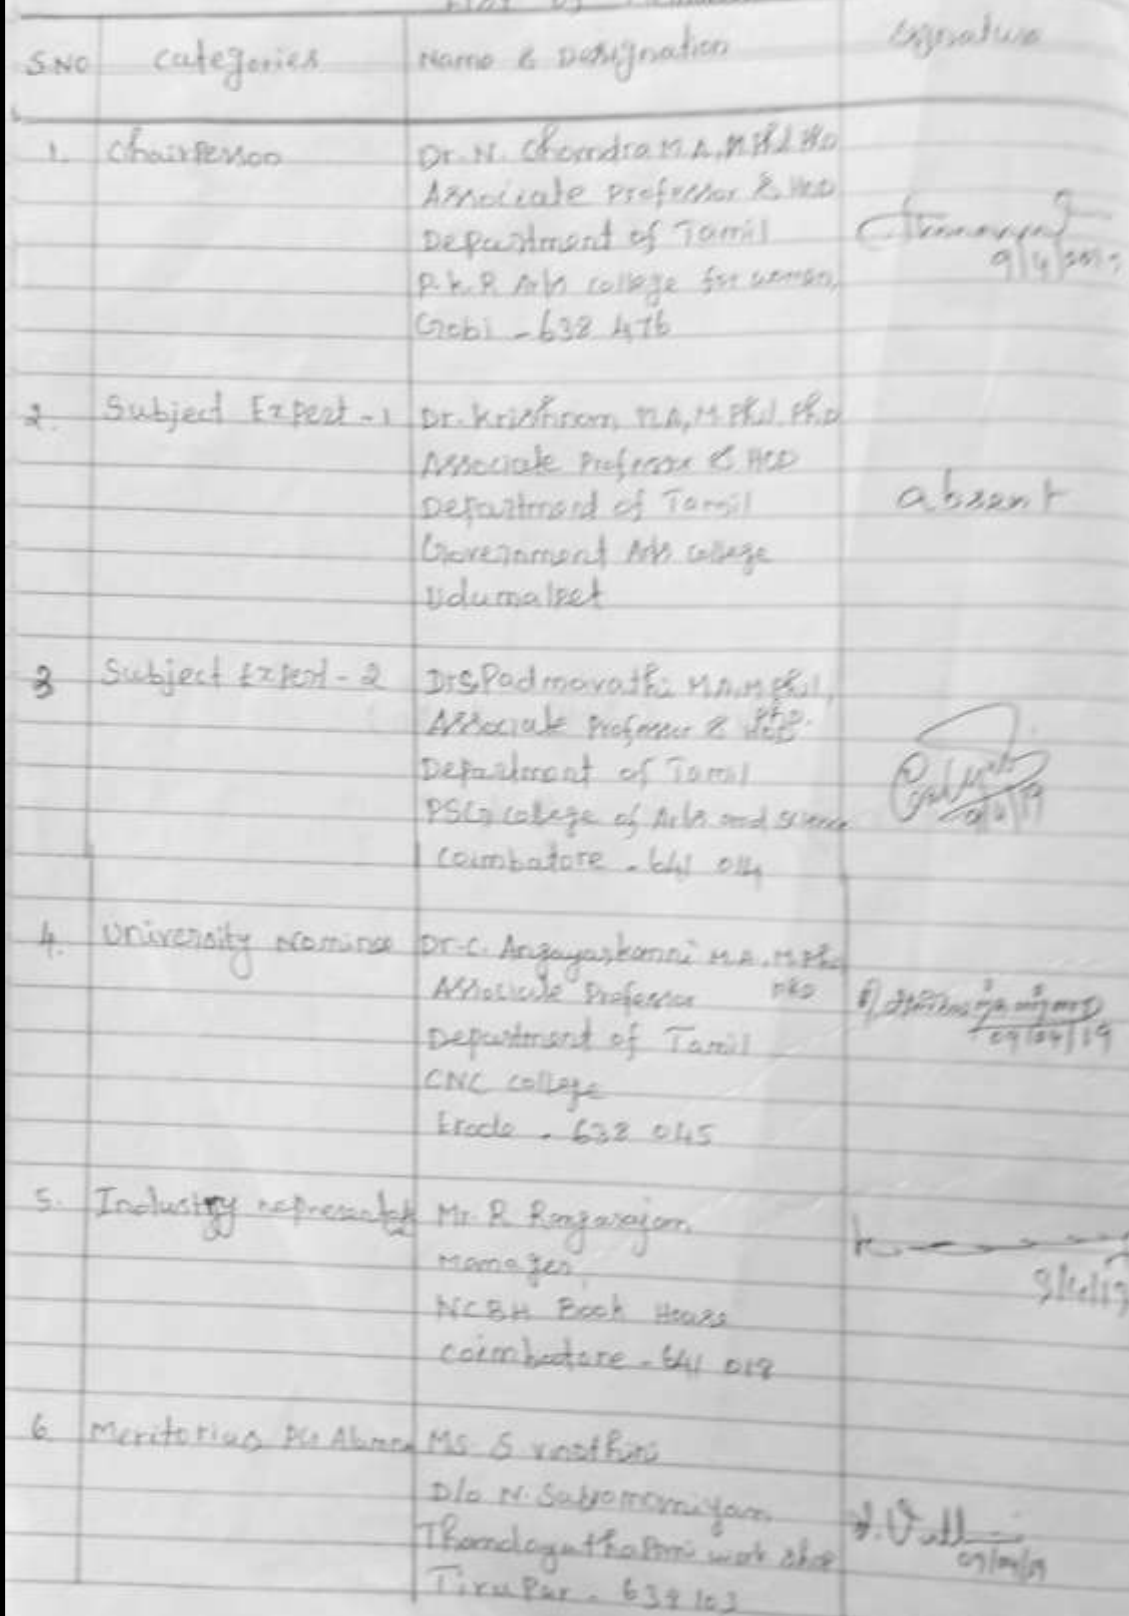 List of
S.NO categories Name & Designation Signature
1. Chairperson Dr. N. Chandra M.A, M.Phil Ph.D
Associate Professor & HOD
Department of Tamil
P.K.R Arts college for women,
9/4/2019
Gobi - 638 476
2. Subject Expert - 1 Dr. Krishnan, M.A, M.Phil, Ph.D
Associate Professor & HOD
Department of Tamil absent
Government Arts college
Udumalpet
3 Subject Expert - 2 Dr.S.Padmavathi M.A, M.Phil,
Associate Professor & Ph.D. HOD
Department of Tamil
PSG college of Arts and science
Coimbatore - 641 014
4. University nominee Dr. C. Angayarkanni M.A. M.Phil
Associate Professor PhD
09/04/19
Department of Tamil
CNC college
Erode - 638 045
5. Industry Mr. R Rangarajan,
Manager,
9/4/19
NCBH Book House
Coimbatore - 641 018
6 Meritorius PG Ms S vinothini
D/o N.
09/04/19
work shop
Tirupur - 638 103